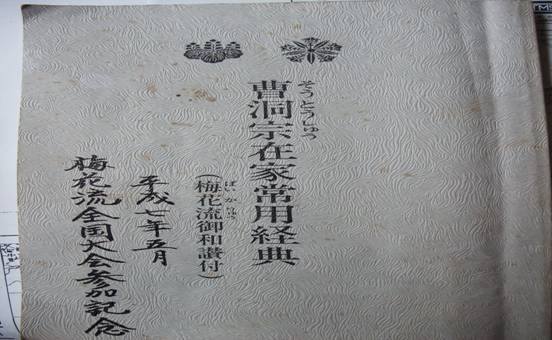 そうとうしゅう
曹洞宗在家常用経典
ばいかりゅう
(梅花流御和讃付)
平成七年五月
梅花流全国大会参加記念